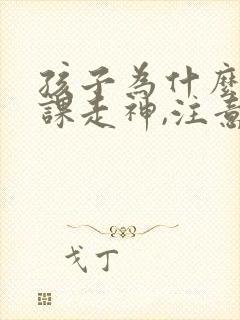 孩子為什麼
課走神,注意
戈丁